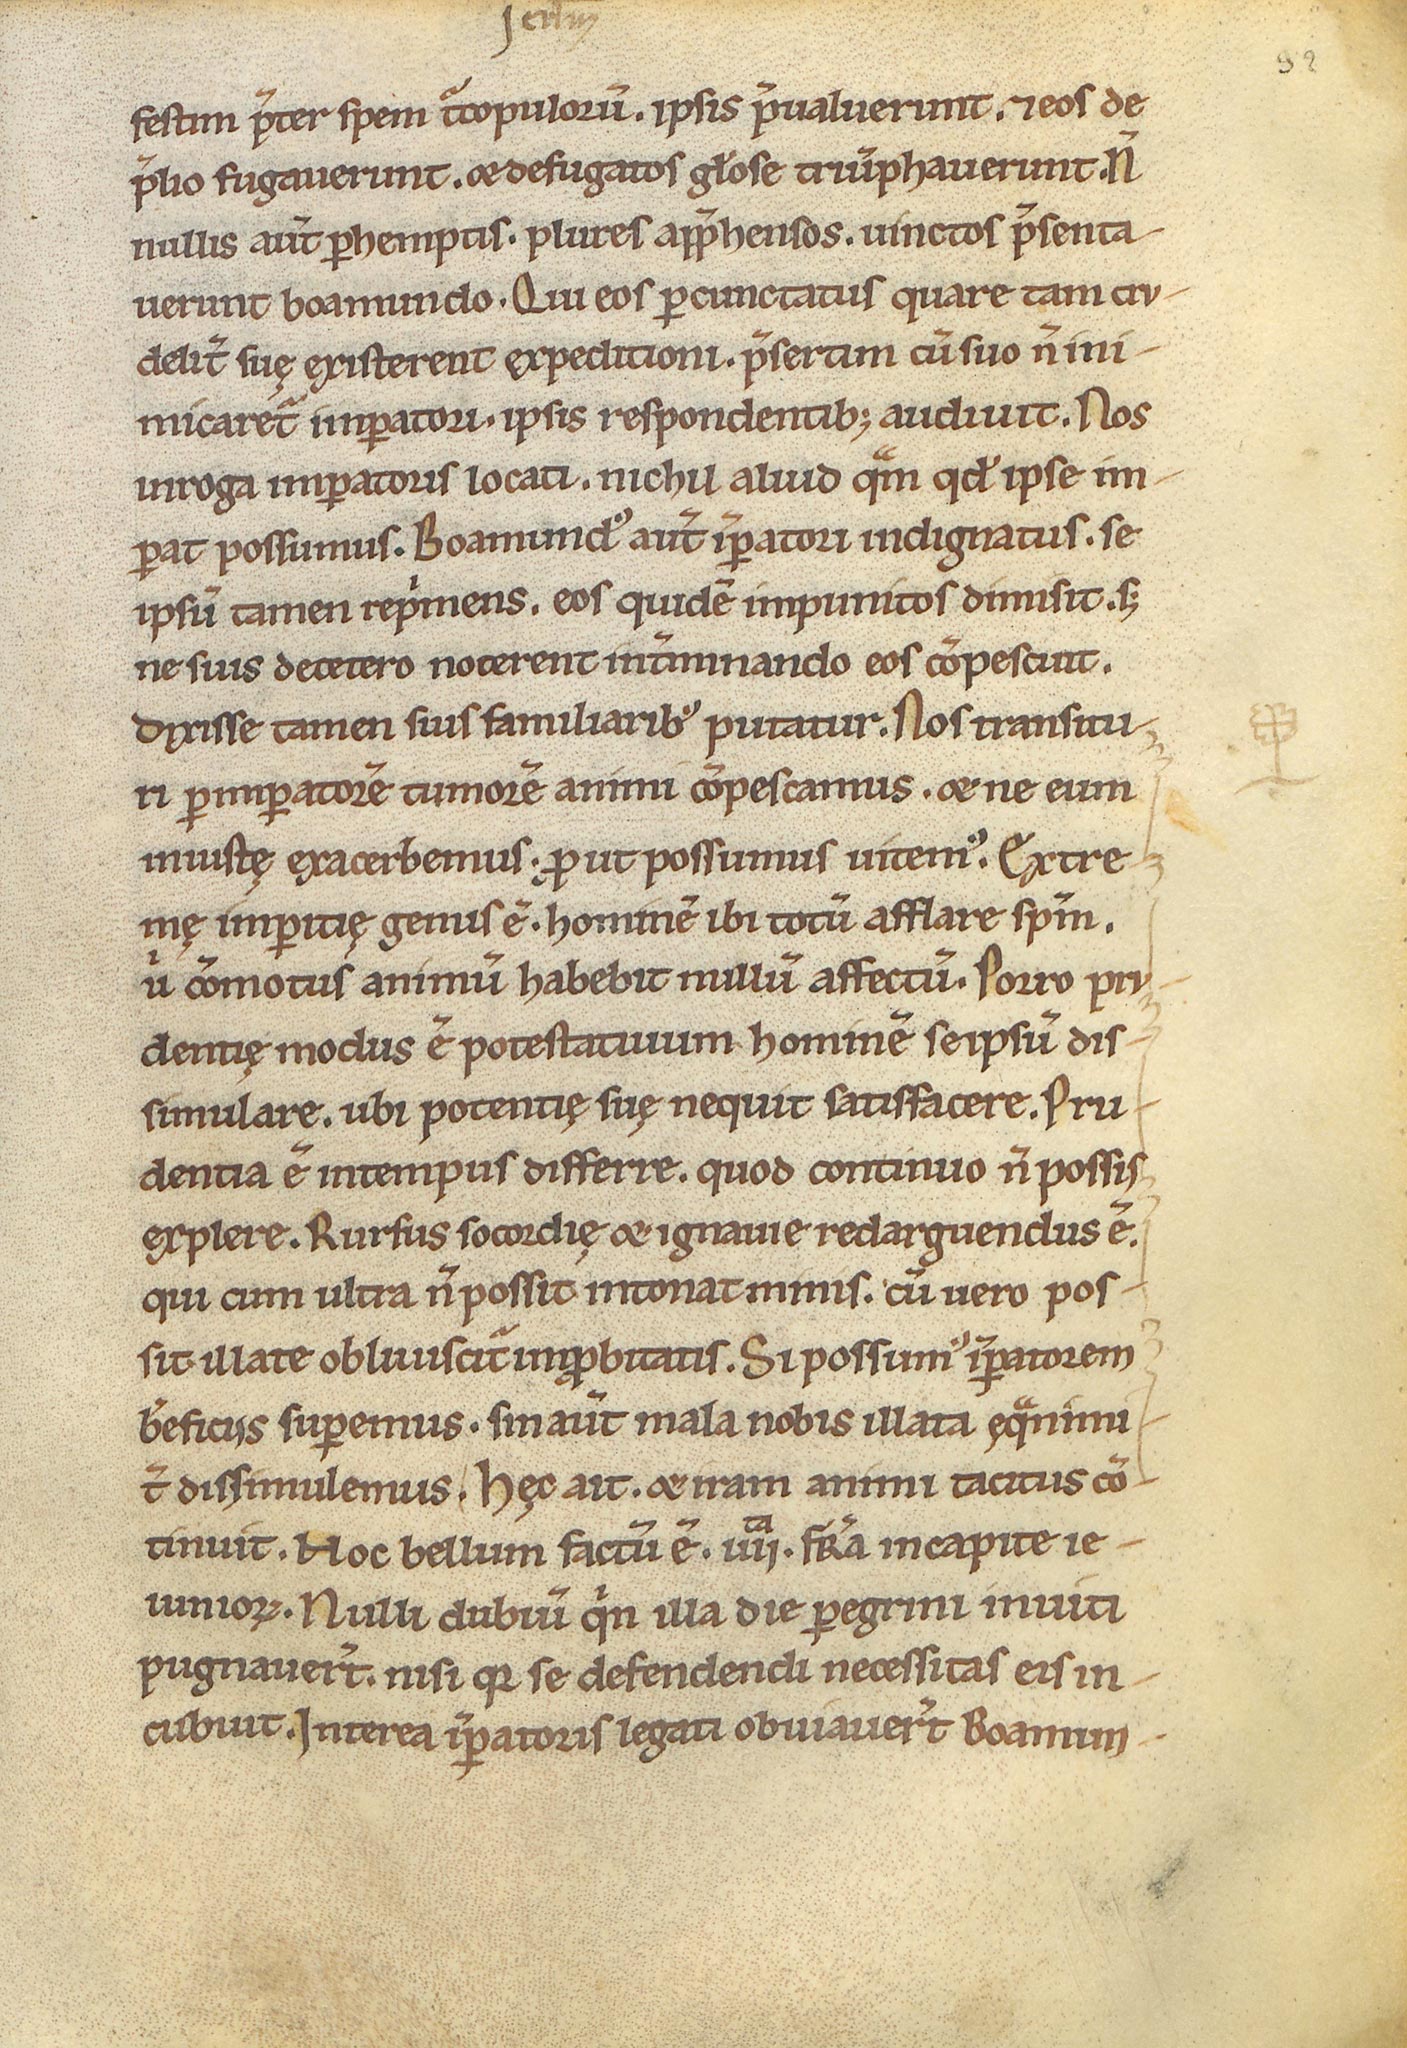 Jerlm
92
festim p̄ter spem t̾copuloru᷒. ipsis p̄ualuerunt. ⁊ eos de
p̄lio fugauerunt. & defugatos gl̄ose triu̅phauerunt. N̄
nullis aut̄ ꝑhemptis. plures app̄hensos. uinctos p̄senta-
uerunt boamundo. Qui eos ꝑcunctatus quare tam cru-
delit̄ suę existerent expeditioni. p̄sertim cū suo n̄ ini-
micaret̾ imꝑatori. ipsis respondentib; audiuit. Nos
inroga imꝑatoris locati. nichil aliud qᵃm qd̄ ipse im-
ꝑat possumus. Boamundꝰ aut̄ īꝑatori indignatus. se
ipsū tamen repⁱmens. eos quidē impunitos dimisit. sꝫ
ne suis decetero nocerent int̄minando eos cōpescuit.
Dixisse tamen suis familiaribꝰ putatur. Nos transitu-
ri ꝑ imꝑatorē tumorē animi cōpescamus. & ne eum
iniustę exacerbemus. ꝓut possumus uitemꝰ. Extre-
mę imꝑitię genus ē. hominē ibi totū afflare spm̄.
uⁱ cōmotus animū habebit nullū affectū. Porro pru-
dentię modus ē potestatiuum hominē seipsū dis-
simulare. ubi potentię suę nequit satisfacere. Pru-
dentia ē intempus differre. quod continuo n̄ possis
explere. Rursus socordię & ignauie redarguendus ē.
qui cum ultra n̄ possit intonat minis. cū uero pos-
sit illate obliuiscit̾ imꝓbitatis. Si possumꝰ īꝑatorem
b̄eficiis suꝑemus. sin aut̄ mala nobis illata ęqᵃnimi-
t̄ dissimulemus. Hęc ait. & iram animi tacitus cō-
tinuit. Hoc bellum factū ē. iiijᵗᵃ. fr̄ia in capite ie-
iunioꝝ. Nulli dubiū qⁱn illa die ꝑegrini inuiti
pugnauer̄t. nisi qr se defendendi necessitas eis in-
cubuit. Interea īꝑatoris legati obuiauer̄t Boamun-